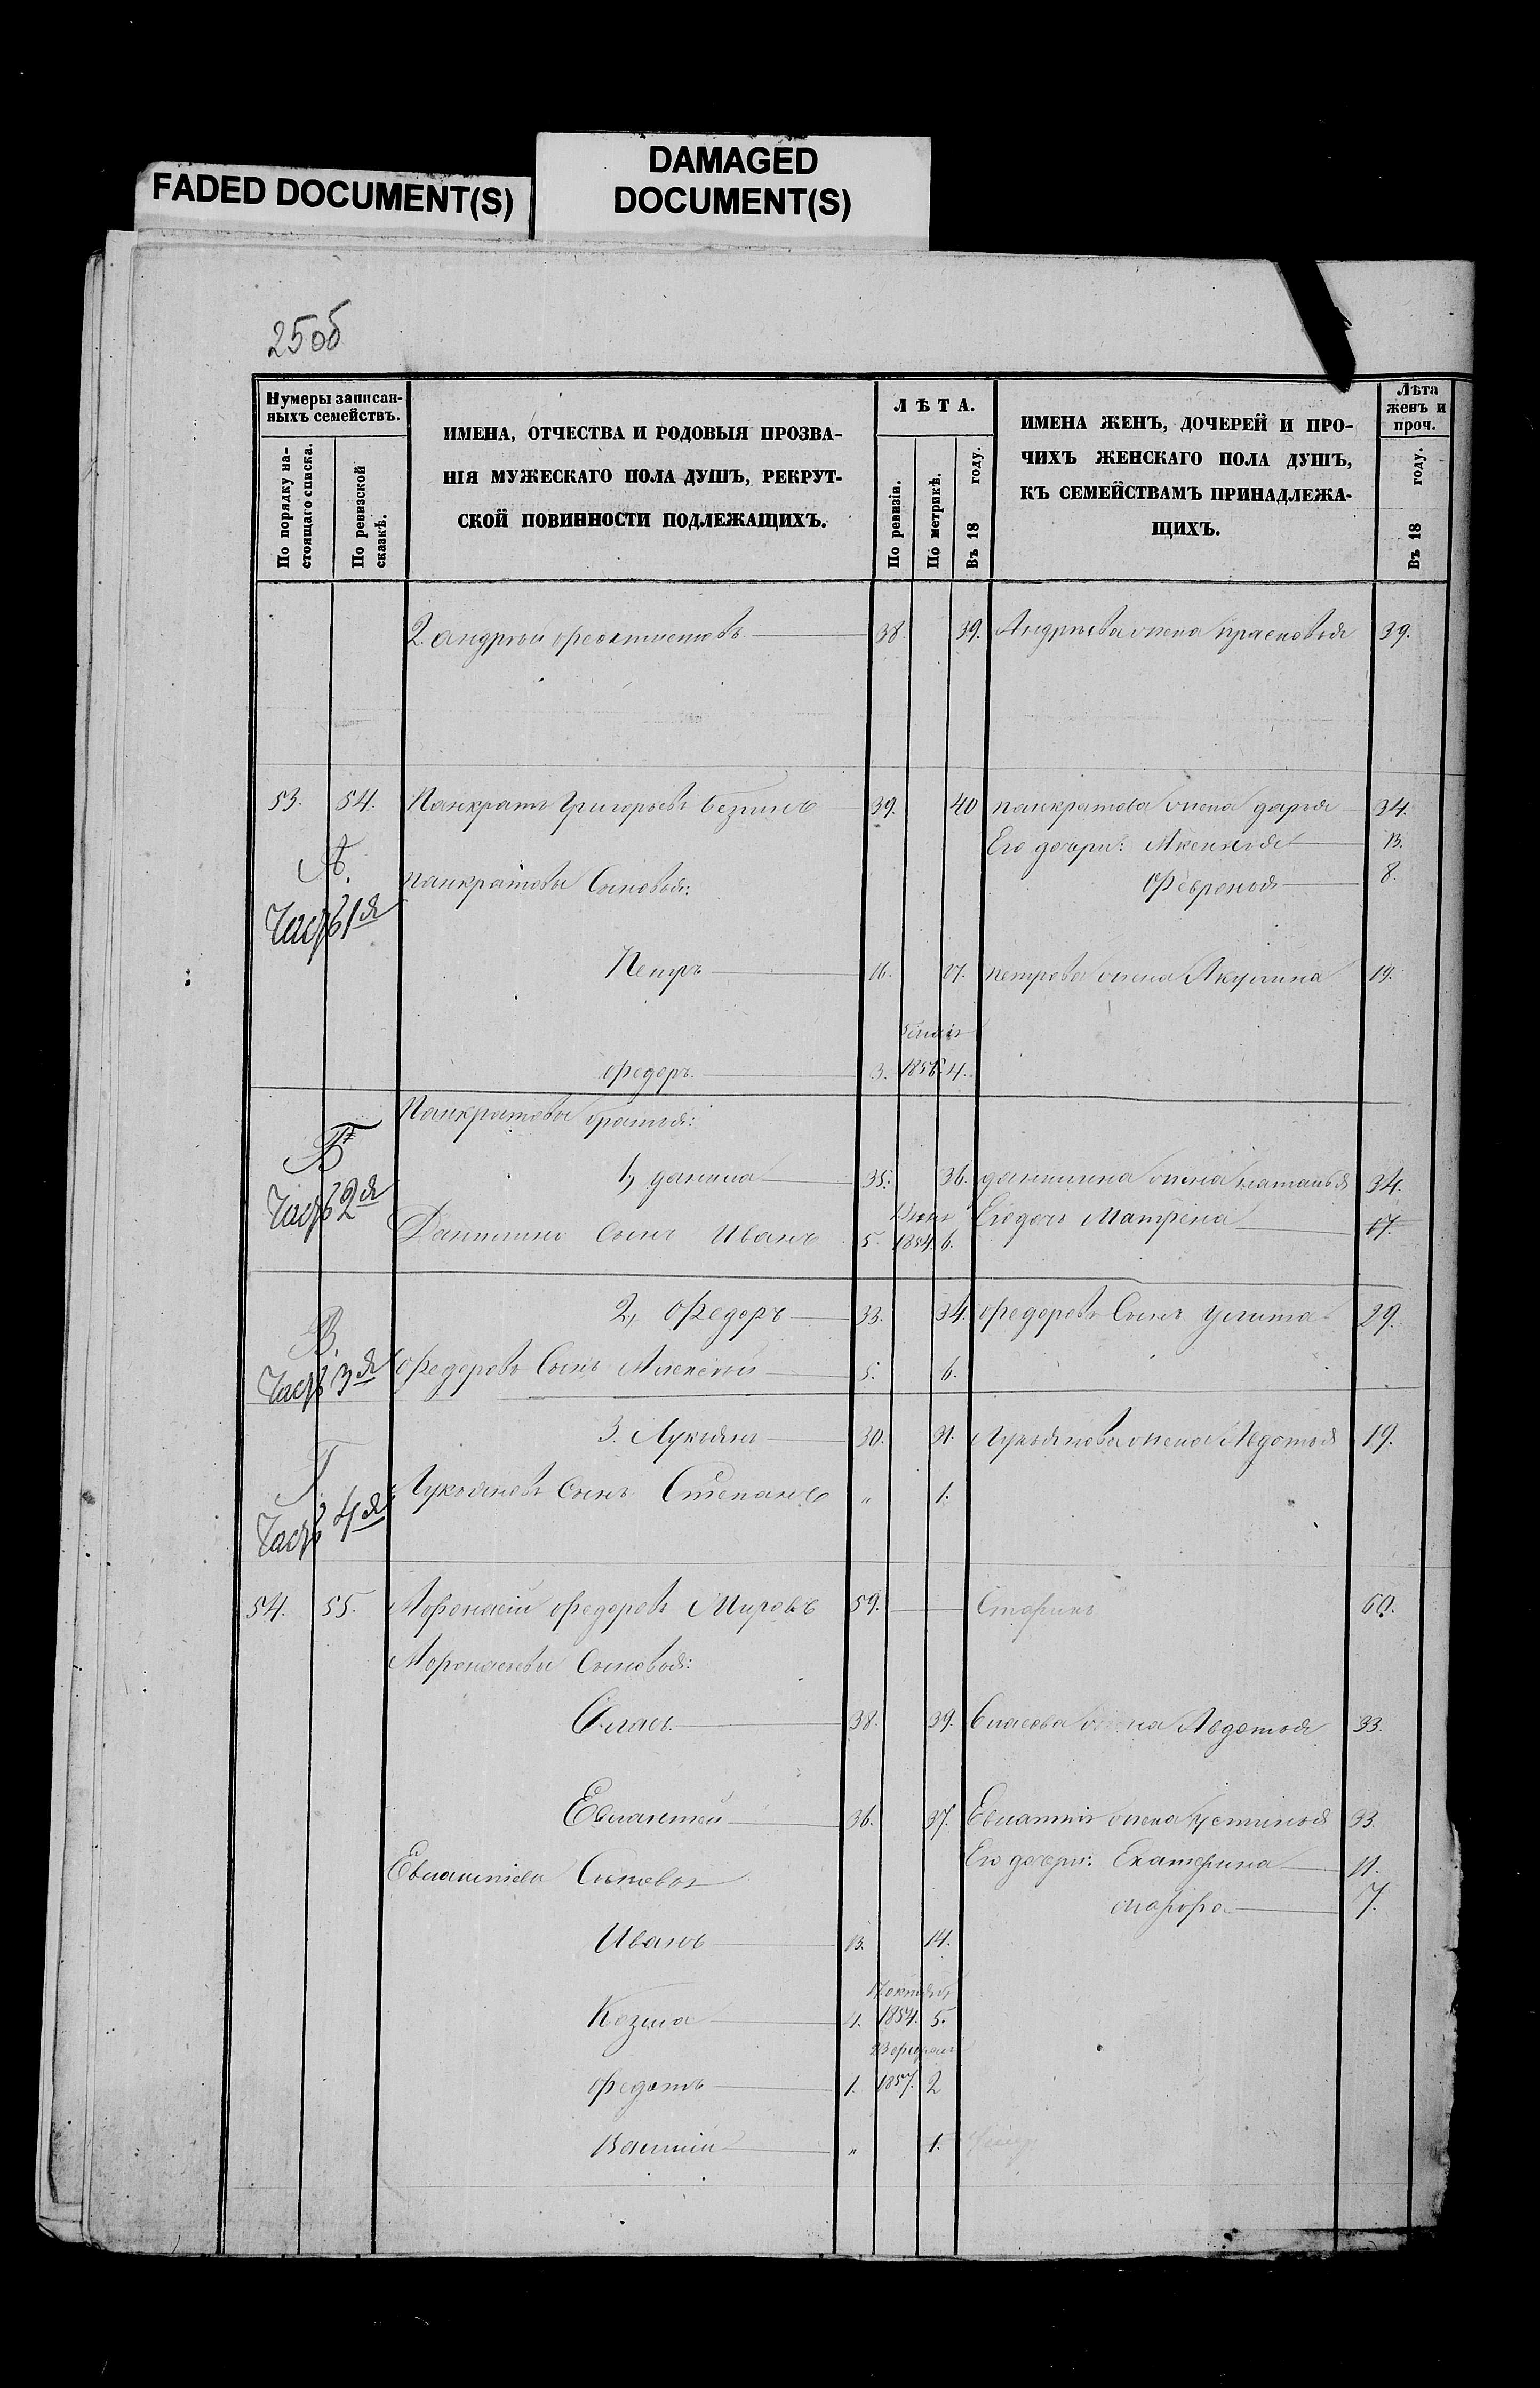 FADED DOCUMENT(S)
DAMAGED
DOCUMENT(S)
25об
Нумеры записан-
ныхъ семействъ.
По порядку на-
стоящаго списка.
По ревизской
сказкѣ.
ИМЕНА, ОТЧЕСТВА И РОДОВЫЯ ПРОЗВА-
НІЯ МУЖЕСКАГО ПОЛА ДУШЪ, РЕКРУТ-
СКОЙ ПОВИННОСТИ ПОДЛЕЖАЩИХЪ.
ЛѢТА.
По ревизіи.
По метрикѣ.
Въ 18 году.
ИМЕНА ЖЕНЪ, ДОЧЕРЕЙ И ПРО-
ЧИХЪ ЖЕНСКАГО ПОЛА ДУШЪ,
КЪ СЕМЕЙСТВАМЪ ПРИНАДЛЕЖА-
ЩИХЪ.
Лѣта
женъ и
проч.
Въ 18 году.
2. андрей феоктистовъ 38. 39. Андреева жена прасковья 39.
53. 54. Панкратъ Григорьевъ 39. 40 панкратова жена дарья 34.
Его дочери: Аксинья 13.
А. панкратовы Сыновья: Февронья 8.
Часть 1я
Петръ 16. 17. петрова жена Акулина 19.
федоръ 3. 1856 4.
Панкратовы братья:
Б
1, данила 35. 36. данилина жена наталья 34.
Часть 2я Его дочь Матрена 17.
Данилинъ Сынъ Иванъ 5. 1854. 6.
2, Федоръ 33. 34. федоровъ Сынъ улита 29.
В.
Часть 3я Федоровъ Сынъ Алексей 5. 6.
3. Лукьянъ 30. 31. Лукьянова жена Авдотья 19.
Г
Лукьяновъ Сынъ Степанъ " 1.
Часть 4я
54. 55. Афонасій федоровъ 59. Старикъ 60.
Афонасьевы Сыновья:
Власъ 38. 39. Власова жена Авдотья 33.
Евлантей 36. 37. жена Устинья 33.
Его дочери: Екатерина 11.
Сыновья
7.
Иванъ 13. 14.
17 октября
Козма 4. 1854. 5.
23 феврал
федотъ 1. 1857. 2
Василій " 1.